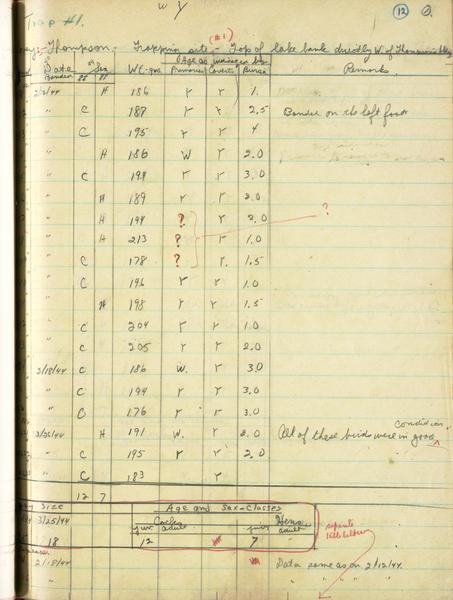 Trap #1.
W Y
12
(#1)
Thompson, - Trapping site, - Top of lake bank directly W. of
Date Sex Wt.-gms. Age as indicated by Remarks
Banded Primaries Coverts Bursa
2/12/44 H 186 r r 1.
" C 187 r r 2.5 Bander on the left foot
" C 195 r r 4
" H 186 W r 2.0
" C 199 r r 3.0
" H 189 r r 2.0
" H 194 ? r 2.0 ?
" H 213 ? r 1.0
" C 178 ? r. 1.5
" C 196 r r 1.0
" H 198 r r 1.5
" C 204 r r 1.0
" C 205 r r 2.0
2/18/44 C 186 W. r 3.0
" C 194 r r 3.0
" C 176 r r 3.0
2/25/44 H 191 W. r 2.0 All of these birds were in good condition.
" C 195 r r 2.0
" C 183 r
12 7
Size Age and Sex-Classes
3/25/44 Cocks Hens
juv. adult juv. adult
18 12 7
separate
2/18/44 Data same as on 2/12/44
" " "